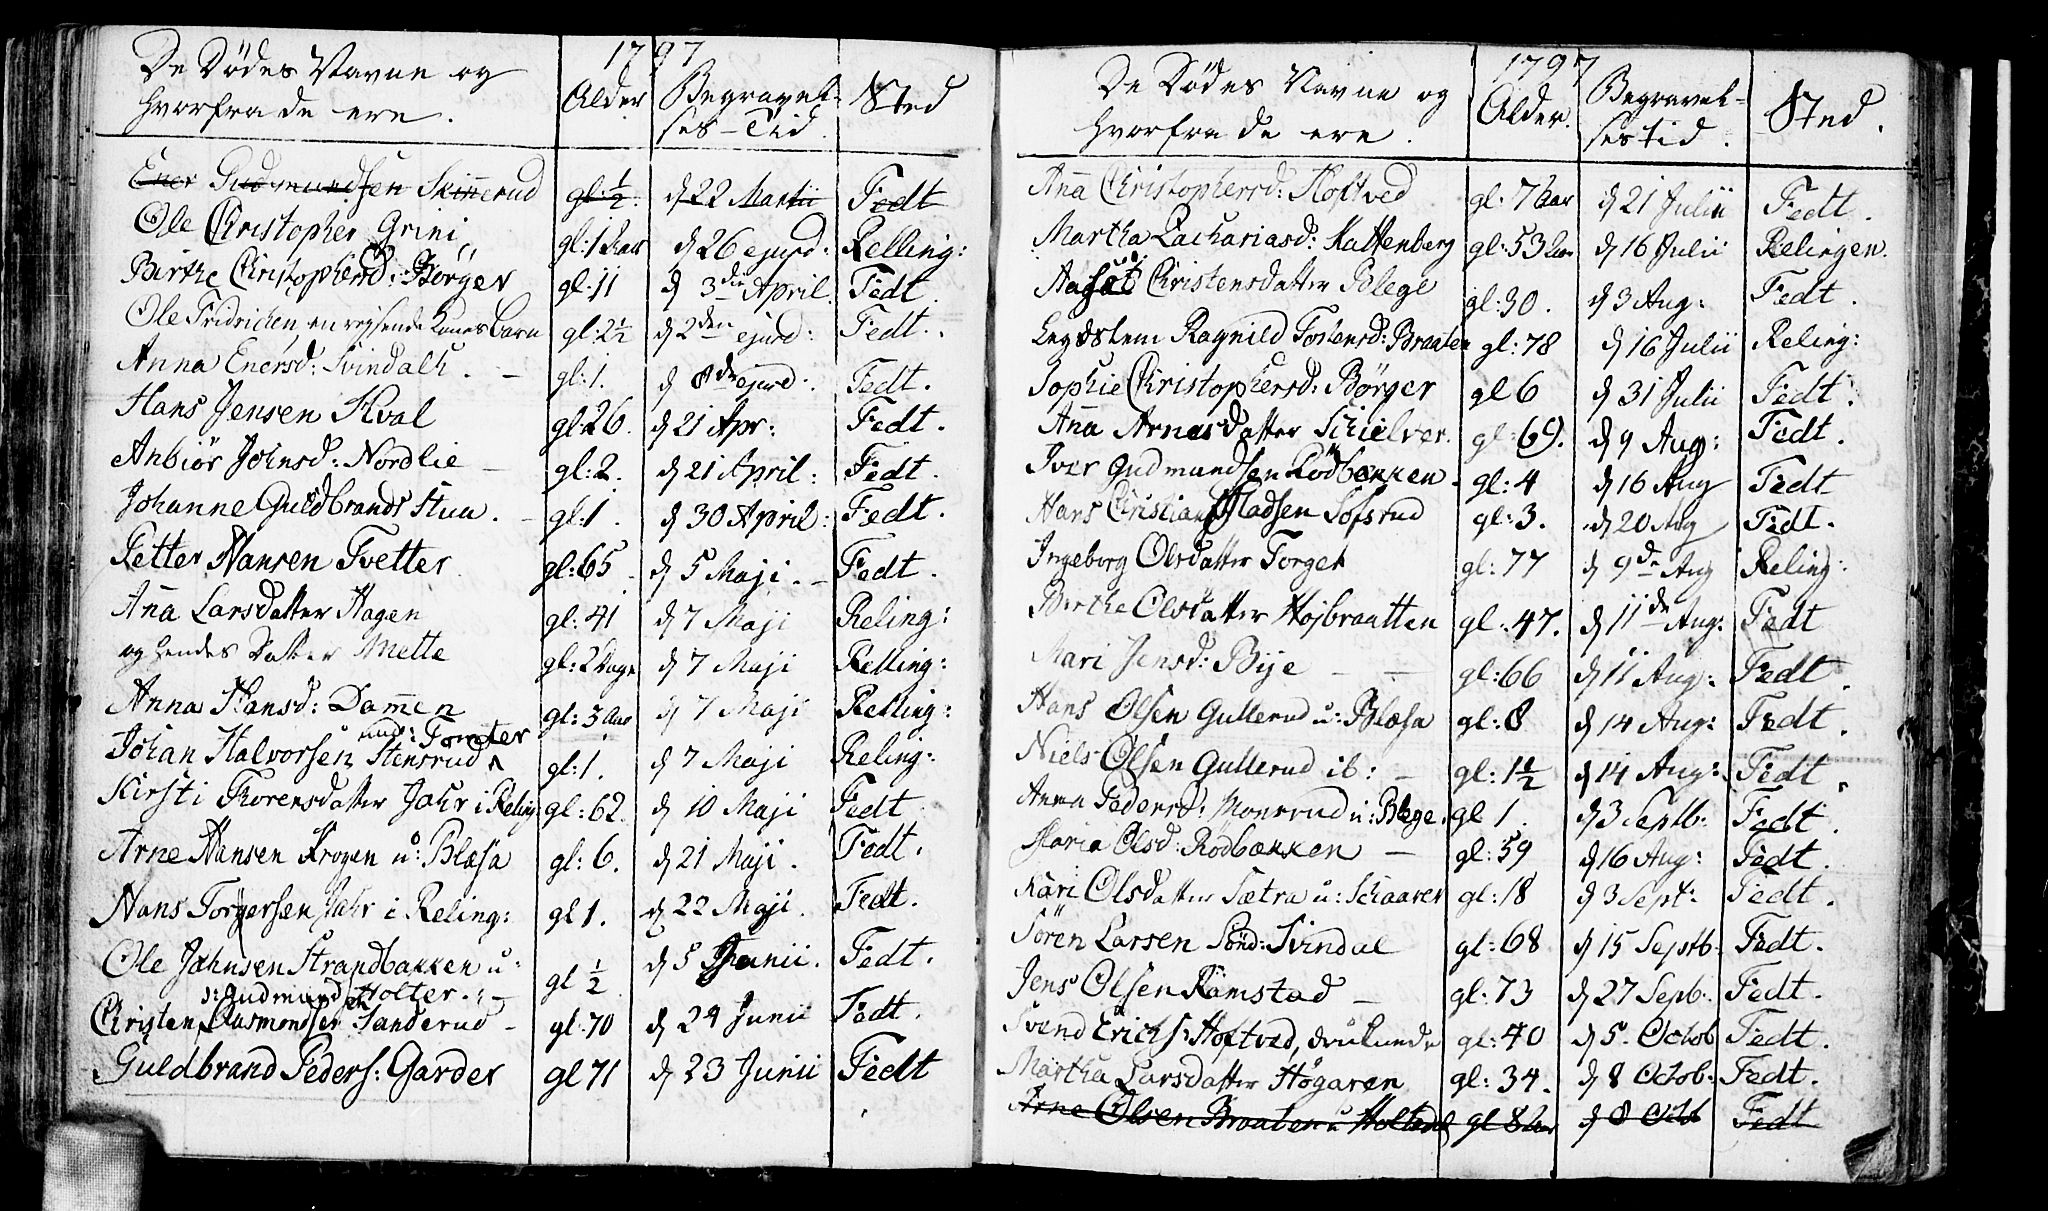 1797
De Dødes Navne og
hvorfra de ere.
Alder
Begravel-
ses-Tid
Sted
Ener Gudmundsen Skinnerud gl: ½. d 22 Martii Fedt
Ole Christopher Grini gl: 1 Aar d 26 ejusd: Relling:
Birthe Christophersd: Börger gl: 11 d 3die April Fedt
Ole Fridrichen en rejsende Kones Barn gl: 2½ d 2den ejusd: Fedt.
Anna Enersd: Svindalh. gl: 1. d 8de ejusd: Fedt.
Hans Jensen Kval gl: 26. d 21 Apr: Fedt.
Anbiör Johnsd: Nordlie gl: 2. d 21 April: Fedt.
Johanne Guldbrands Stua. gl: 1. d 30 April: Fedt.
Petter Hansen Tvetter gl: 65 d 5 Maji. Fedt.
Aña Larsdatter Hagen gl: 41 d 7 Maji Reling:
og hendes Datter Mette gl: 2 Dage d 7 Maji Relling:
Anna Hansd: Dam̃en gl: 3 Aar d 7 Maji Relling:
und: Tomter
Johan Halvorsen Stensrud gl: 1. d 7 Maji Reling:
Kirsti Thorensdatter Jahr i Reling: gl: 62. d 10 Maji Fedt
Arne Hansen Krogen u: Blæsa gl: 6. d 21 Maji. Fedt.
Hans Torgersen Jahr i Reling: gl 1. d 22 Maji. Fedt.
Ole Johnsen Strandbakken u: gl ½ d 5 Junii. Fedt.
Holter.
Christen Sanderud gl: 70 d 24 Junii Fedt.
Guldbrand Peders: Garder gl 71 d 23 Junii Fedt
1797
De Dødes Navne og
hvorfra de ere.
Alder.
Begravel-
ses tid.
Sted.
Aña Christophersd: Hoftved gl: 7 Aar d 21 Julii Fedt.
Martha Zachariasd: Kattenberg gl: 53 Aar d 16 Julii Relingen.
Christensdatter Blege gl: 30. d 3 Aug: Fedt.
Legdslem Ragnild Tostensd: Braaten gl: 78 d 16 Julii Reling:
Sophie Christophersd: Börger gl 6 d 31 Julii Fedt.
Aña Arnesdatter Schielver. gl: 69. d 9 Aug: Fedt.
Iver Gudmundsen Rödbækken. gl: 4 d 16 Aug Fedt
Hans Christian Madsen Sofsrud gl: 3. d 20 Aug Fedt.
Ingeborg Olsdatter Torget gl: 77 d 9de Aug Reling:
Berthe Olsdatter Højbraatten gl: 47. d 11de Aug: Fedt
Mari Jensd: Bije gl: 66 d 11 Aug: Fedt.
Hans Olsen Gullerud u: Blæsa gl: 8 d 14 Aug: Fedt.
Niels Olsen Gullerud ib: gl: 1½ d 14 Aug: Fedt.
Anna Pedersd: Monsrud u: Blege. gl 1. d 3 Septb: Fedt.
Maria Olsd: Rodbækken gl: 59 d 16 Aug: Fedt.
Kari Olsdatter Sætra u: Schaarer gl: 18 d 3 Sept: Fedt.
Sören Larsen Sönd: Svindal gl: 68 d 15 Septb: Fedt.
Jens Olsen Ramstad gl: 73 d 27 Sepb: Fedt.
Svend Erichs: Hoftved, druknede gl: 40 d 5. Octob Fedt.
Martha Larsdatter Högaren gl: 34. d 8 Octob: Fedt.
Arne Olsen Braaten u Holtend gl 8 Aar d 8 Octb Fedt